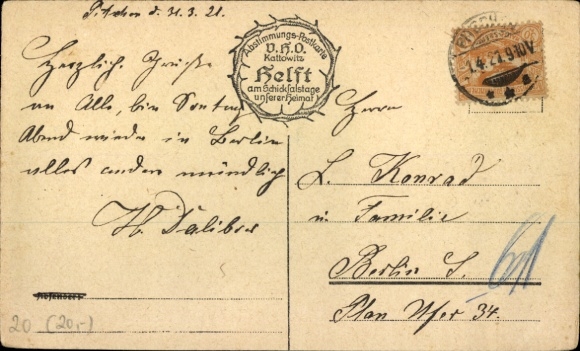 Pitschen d. 31.3.21.
Herzliche Grüße
an Alle, bin Sonntag
Abend wieder in Berlin
alles andere mündlich
H. Daliber
Abstimmungs-Postkarte
V.H.O.
Kattowitz
Helft
am Schicksalstage
unserer Heimat
1.4.21.9-10V
Herrn
L. Konrad
u. Familie
Berlin S.
Plan Ufer 34.
20 (20,-)